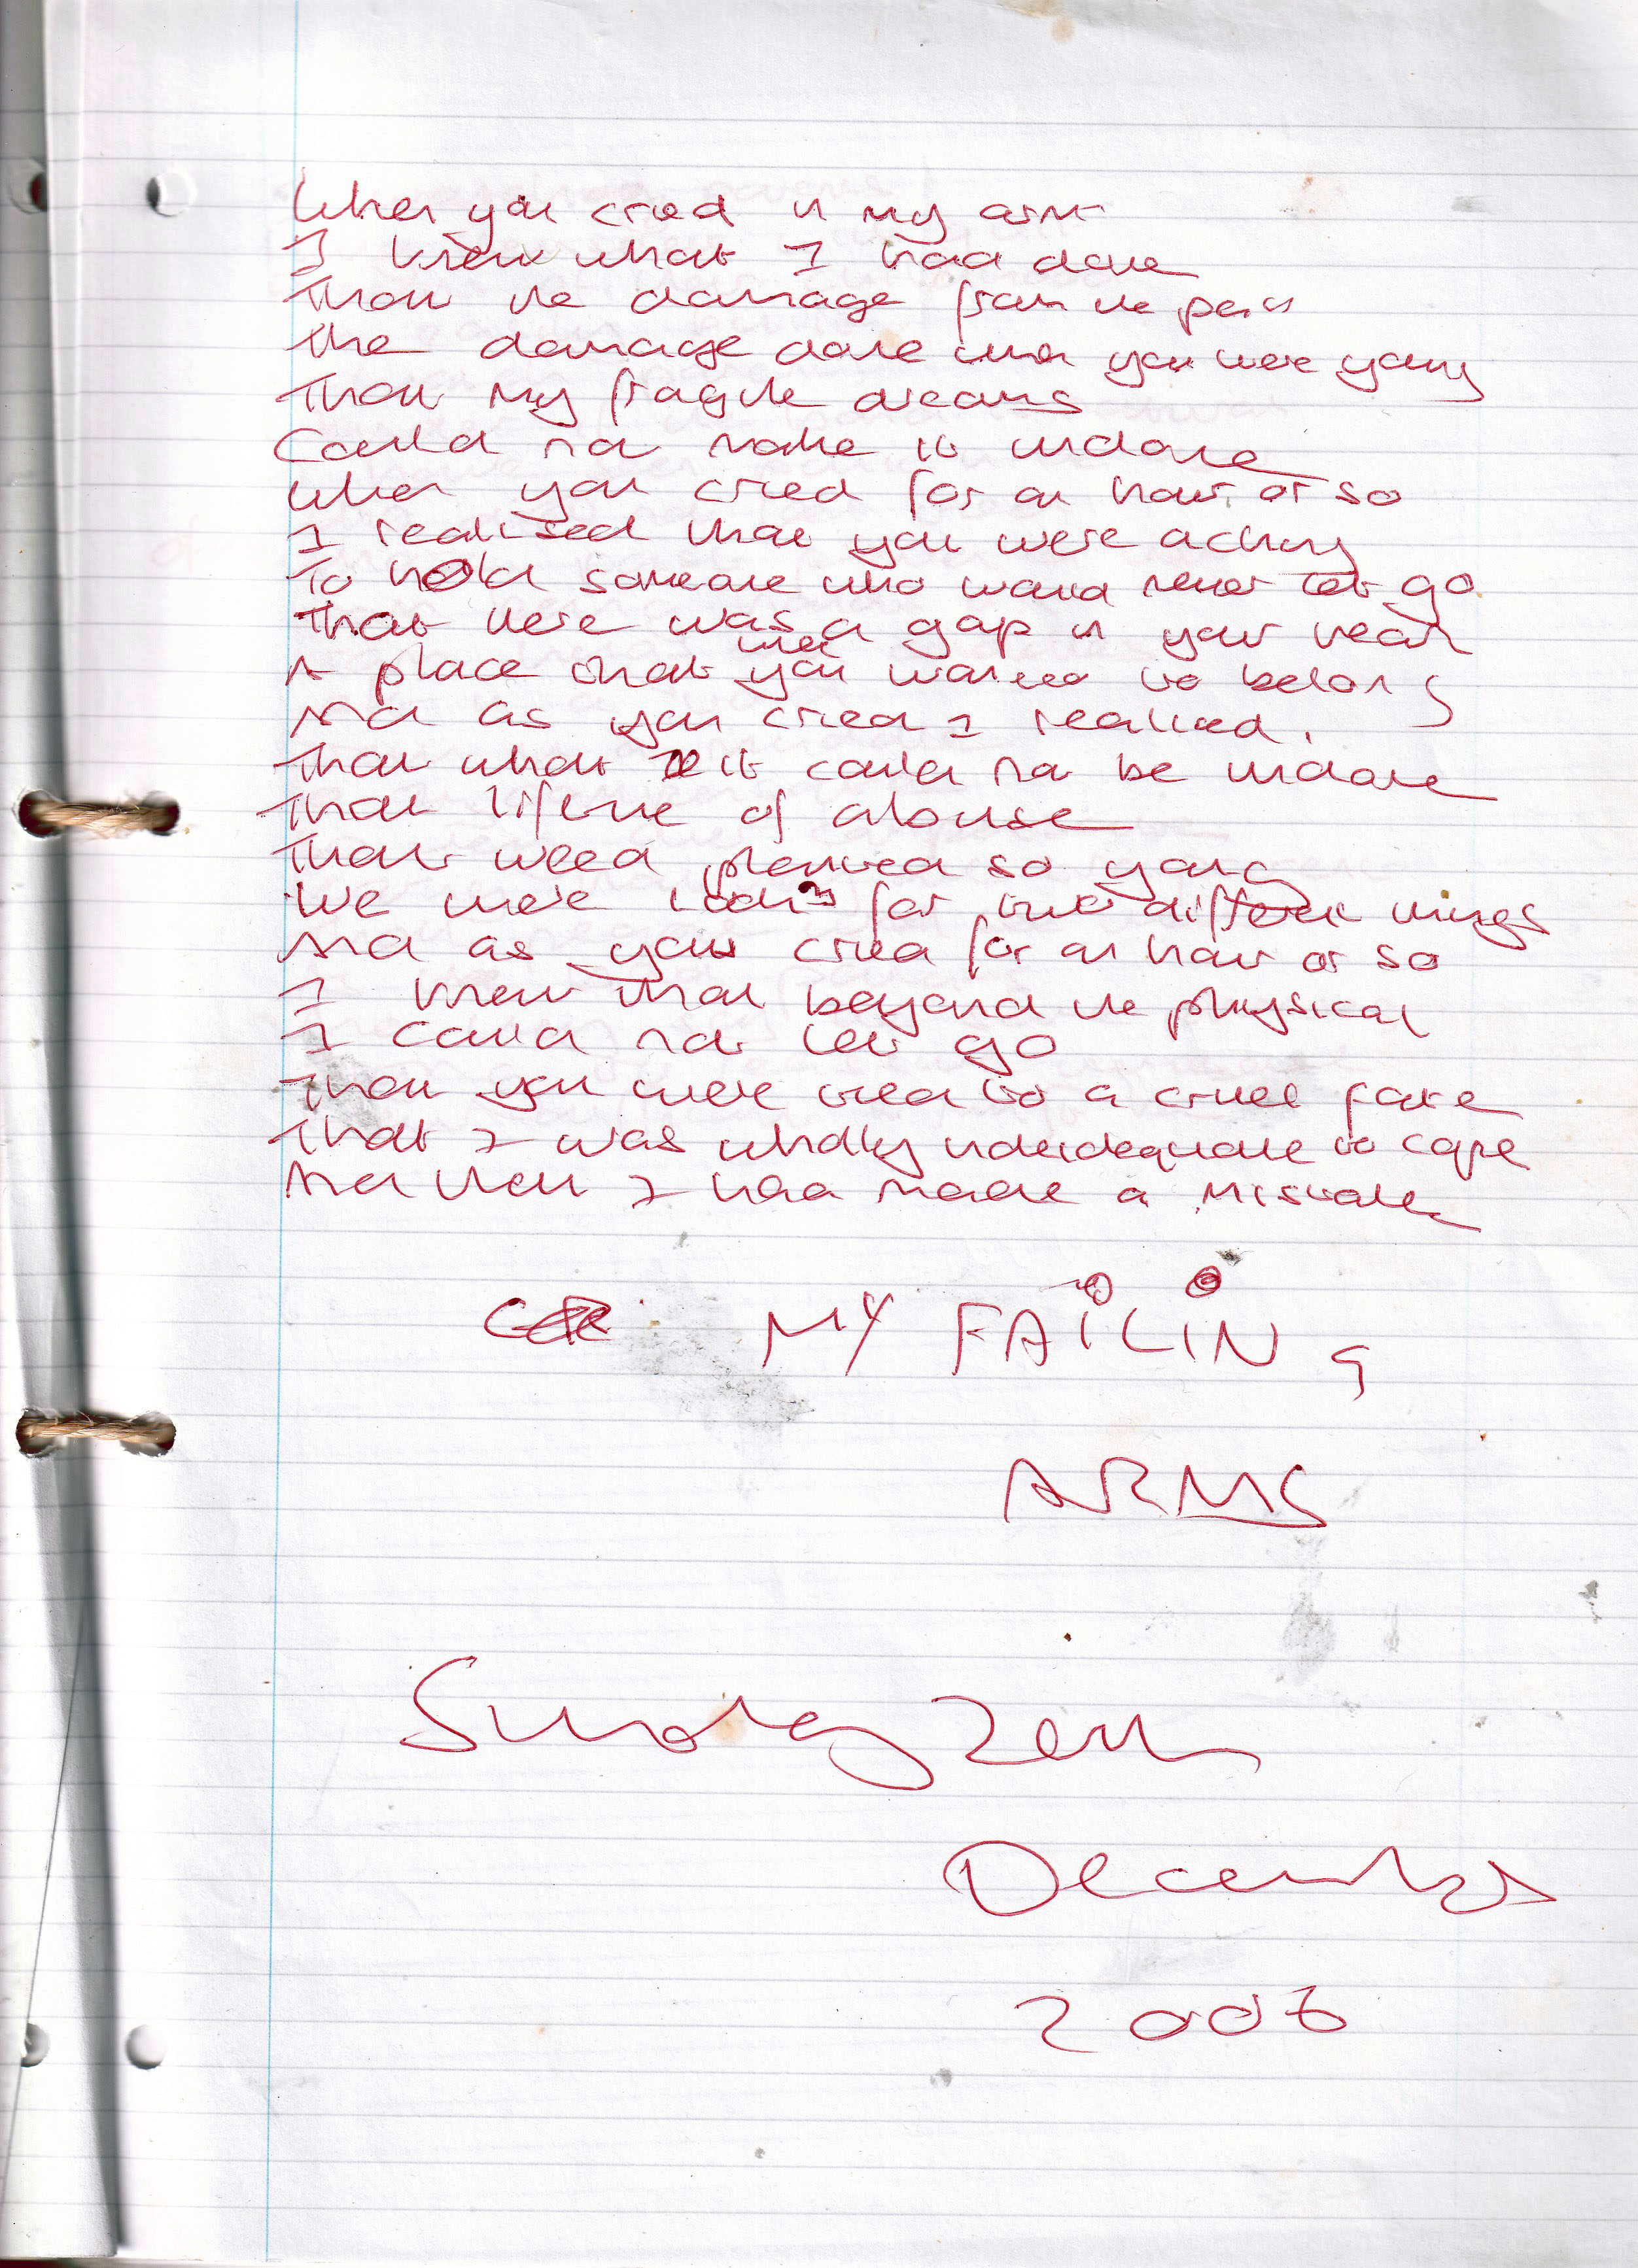 When you cried in my arms
I knew what I had done
That the damage from the past
The damage done when you were young
That my fragile dreams
Could not make it undone
When you cried for an hour or so
I realised that you were aching
To hold someone who would never let go
That there was a gap in your heart
A place that when you wanted to belong
And as you cried I realised.
That what it could not be undone
That lifetime of abuse
That weed planted so young
We were looking for two different things
And as you cried for an hour or so
I knew that beyond the physical
I could not let go
That you were tied to a cruel fate
That I was wholly to cope
And that I had made a mistake
MY FAILING
ARMS
Sunday
December
2006